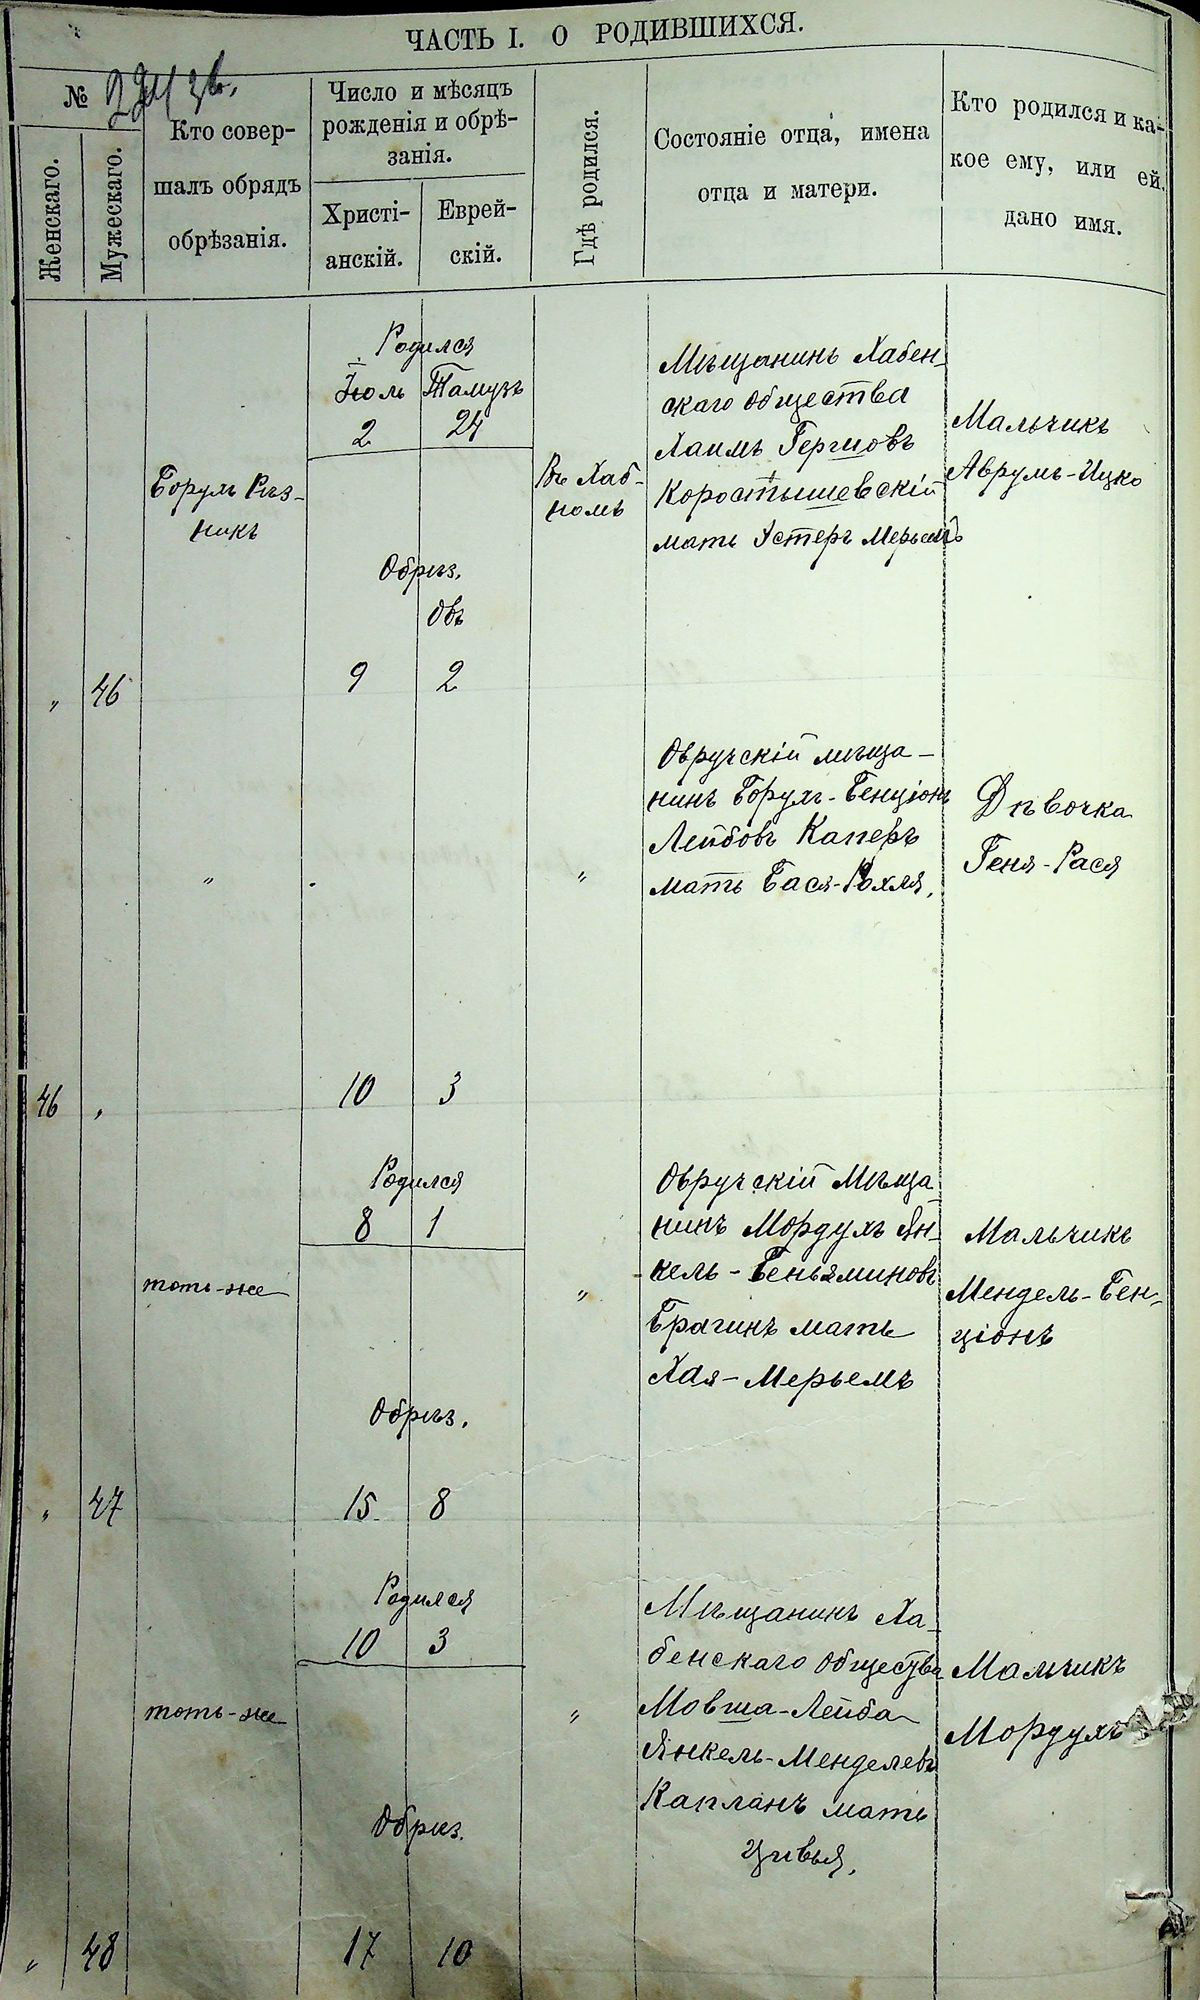 ЧАСТЬ I. О РОДИВШИХСЯ.
№
Женскаго.
Мужескаго.
Кто совер-
шалъ обрядъ
обрѣзанія.
Число и мѣсяцъ
рожденія и обрѣ-
занія.
Христі-
анскій.
Еврей-
скій.
Гдѣ родился.
Состояніе отца, имена
отца и матери.
Кто родился и ка-
кое ему, или ей,
дано имя.
„ 46
Борухъ Рѣз-
никъ
Родился
Іюль Тамузъ
2 24
Обрѣз.
Овъ
9 2
Въ Хаб-
номъ
Мѣщанинъ Хабен-
скаго общества
Хаимъ Гершовъ
Коростышевскій
мать Эстеръ Мерьемъ
Мальчикъ
Аврумъ-Ицко
46 „
„
10 3
„
Овручскій мѣща-
нинъ Борухъ-Бенціонъ
Лейбовъ Каперъ
мать Бася-Рохля,
Дѣвочка
Геня-Рася
„ 47
тотъ-же
Родился
8 1
Обрѣз.
15 8
„
Овручскій Мѣща-
нинъ Мордухъ Ян-
кель-Беньяминовъ
Брагинъ мать
Хая-Мерьемъ
Мальчикъ
Мендель-Бен-
ціонъ
„ 48
тотъ-же
Родился
10 3
Обрѣз.
17 10
„
Мѣщанинъ Ха-
бенскаго общества
Мовша-Лейба
Янкель-Менделевъ
Капланъ мать
Цивья,
Мальчикъ
Мордухъ